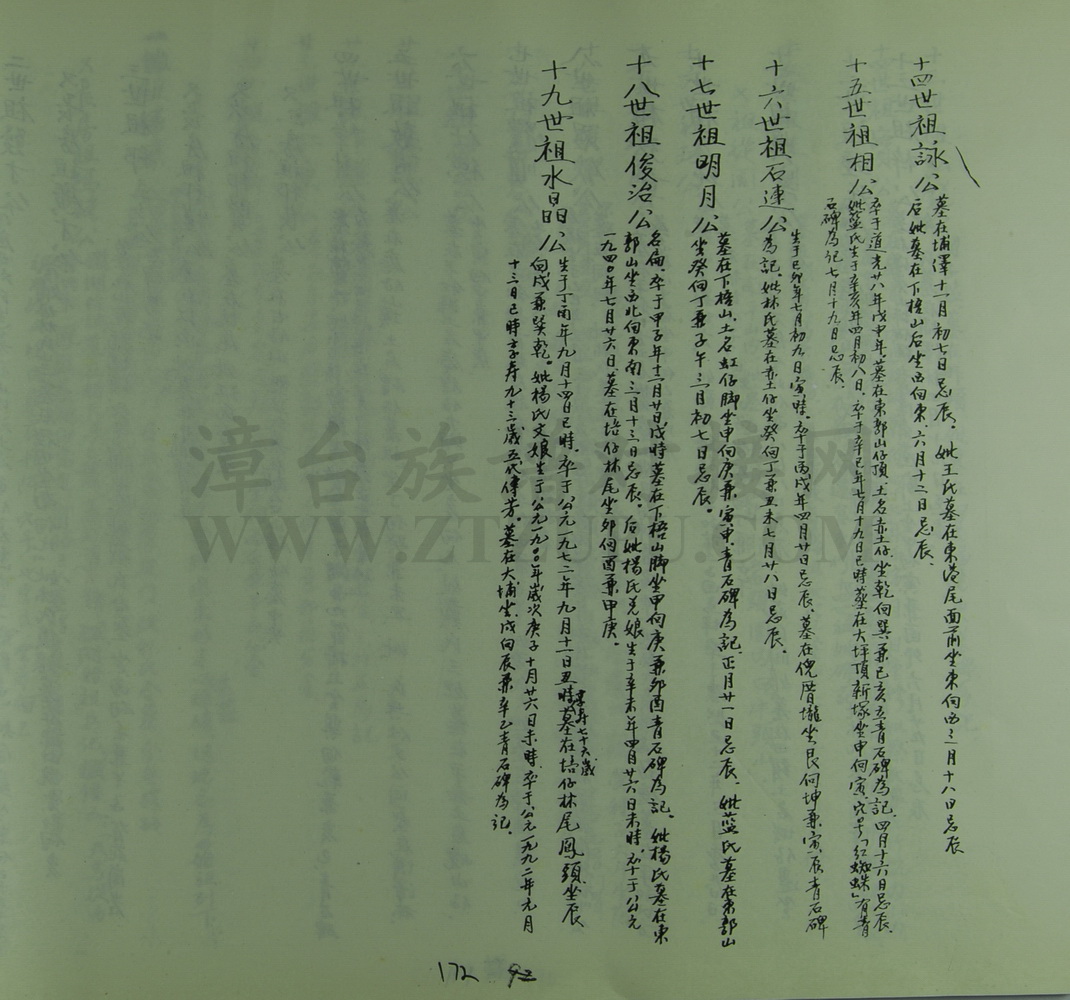 十四世祖詠公
墓在埔澤十一月初七日忌辰、妣王氏墓在東港尾面前坐東向西三月十八日忌辰
后妣墓在下梧山后坐西向東、六月十二日忌辰、
十五世祖相公
卒于道光廿八年戊申年、墓在東郭山仔頂、土名赤土仔坐乾向巽兼巳亥立青石碑為記、四月十六日忌辰、
妣藍氏生于辛亥年四月初八日、卒于辛巳年七月十九日巳時墓在大坪頂新塚坐申向寅、穴号「紅蜘蛛」有青
石碑為記七月十九日忌辰、
十六世祖石連公
生于己卯年七月初九日寅時、卒于丙戌年四月廿日忌辰、墓在倪厝壠坐艮向坤兼寅辰青石碑
為記、妣林氏墓在赤土仔坐癸向丁兼丑未七月廿八日忌辰、
十七世祖明月公
墓在下梧山、土名虹仔脚坐甲向庚兼寅申、青石碑為記、正月廿一日忌辰、妣藍氏墓在東郭山
坐癸向丁兼子午、三月初七日忌辰。
十八世祖俊治公
名扁、卒于甲子年十一月廿日戌時墓在下梧山脚坐甲向庚兼卯酉青石碑為記、妣楊氏墓在東
郭山坐西北向東南三月十三日忌辰。后妣楊氏羌娘生于辛未年四月廿六日未時、卒于公元
一九四〇年七月廿六日、墓在培仔林尾坐卯向酉兼甲庚。
十九世祖水晶公
生于丁酉年九月十四日巳時、卒于公元一九七二年九月十一日丑時享寿七十六歲墓在培仔林尾鳳頭坐辰
向戌兼巽乾。妣楊氏文娘生于公元一九〇〇年歲次庚子十月廿六日未時、卒于公元一九九二年元月
十三日巳時享寿九十三歲五代傳芳。墓在大埔坐戌向辰兼辛乙青石碑為記、
172 92
漳台族谱对接网
WWW.ZTZUPU.COM